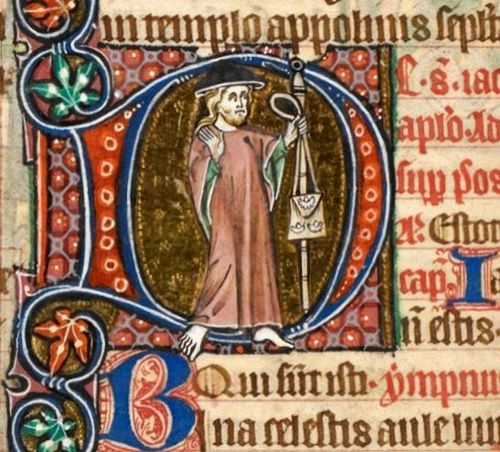 in templo appolinis sept
D
S. iac
aplo.
sup pos
Estot
cap. I
estis
Qui sūt isti. ympnu
Bina celestis aule lum